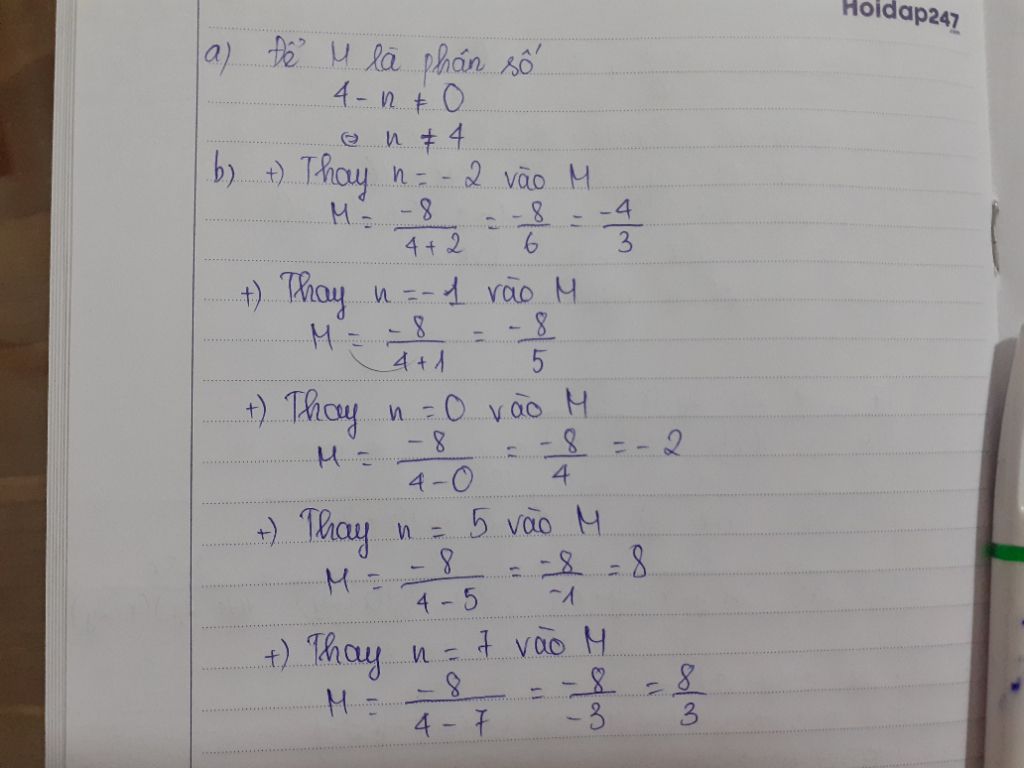 Hoidap247
a) Để M là phân số
4 - n ≠ 0
⇔ n ≠ 4
b) +) Thay n = - 2 vào M
M = -8/(4+2) = -8/6 = -4/3
+) Thay n = -1 vào M
M = -8/(4+1) = -8/5
+) Thay n = 0 vào M
M = -8/(4-0) = -8/4 = -2
+) Thay n = 5 vào M
M = -8/(4-5) = -8/-1 = 8
+) Thay n = 7 vào M
M = -8/(4-7) = -8/-3 = 8/3